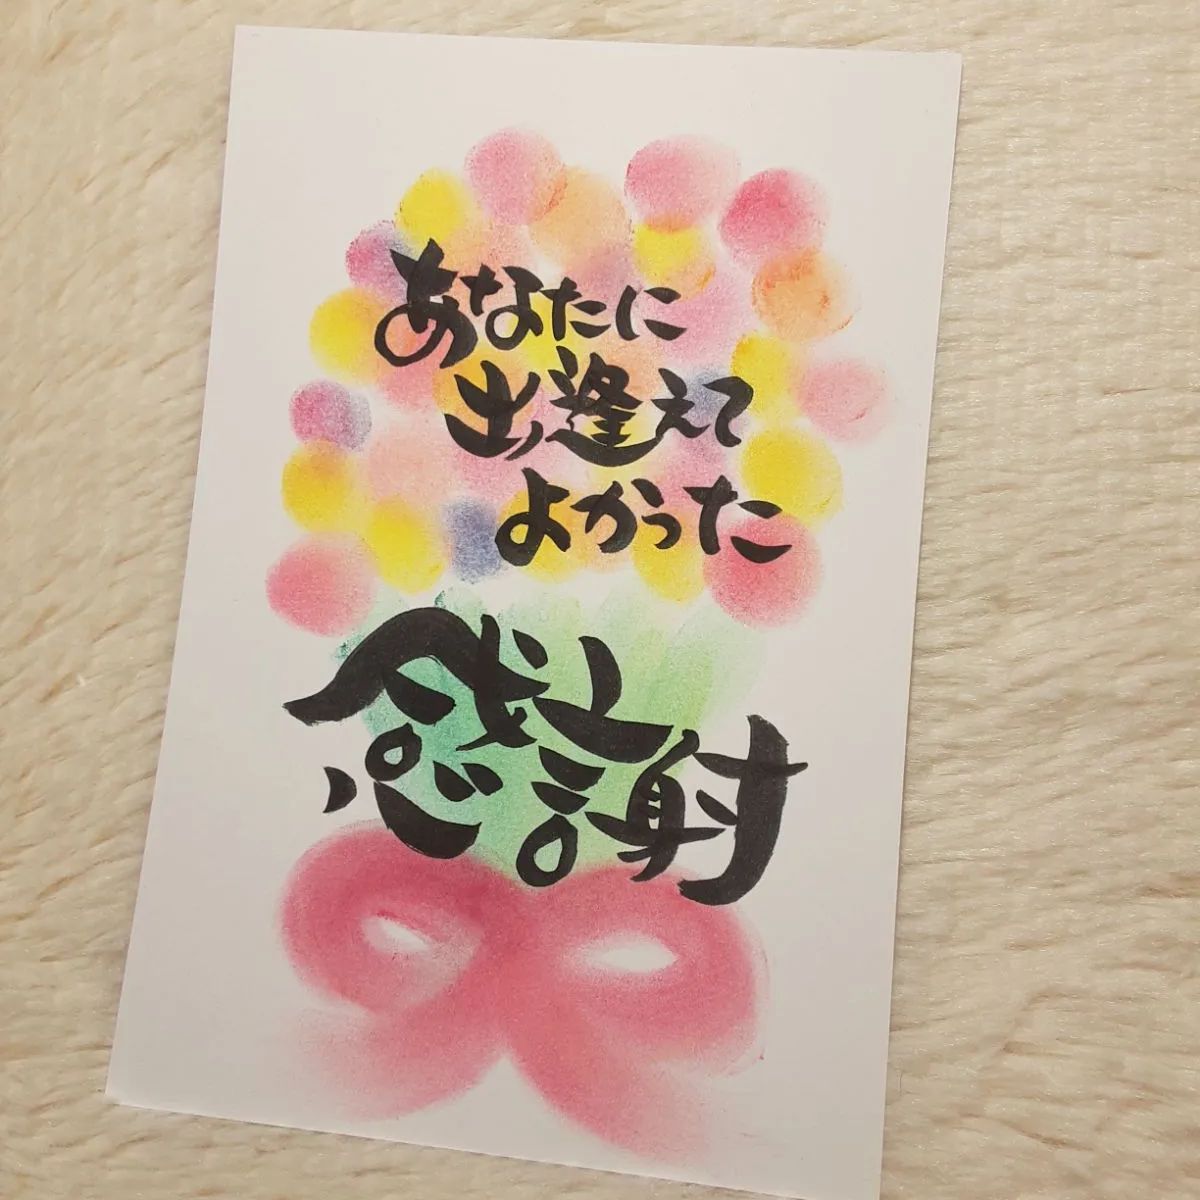 あなたに
出逢えて
よかった
感謝